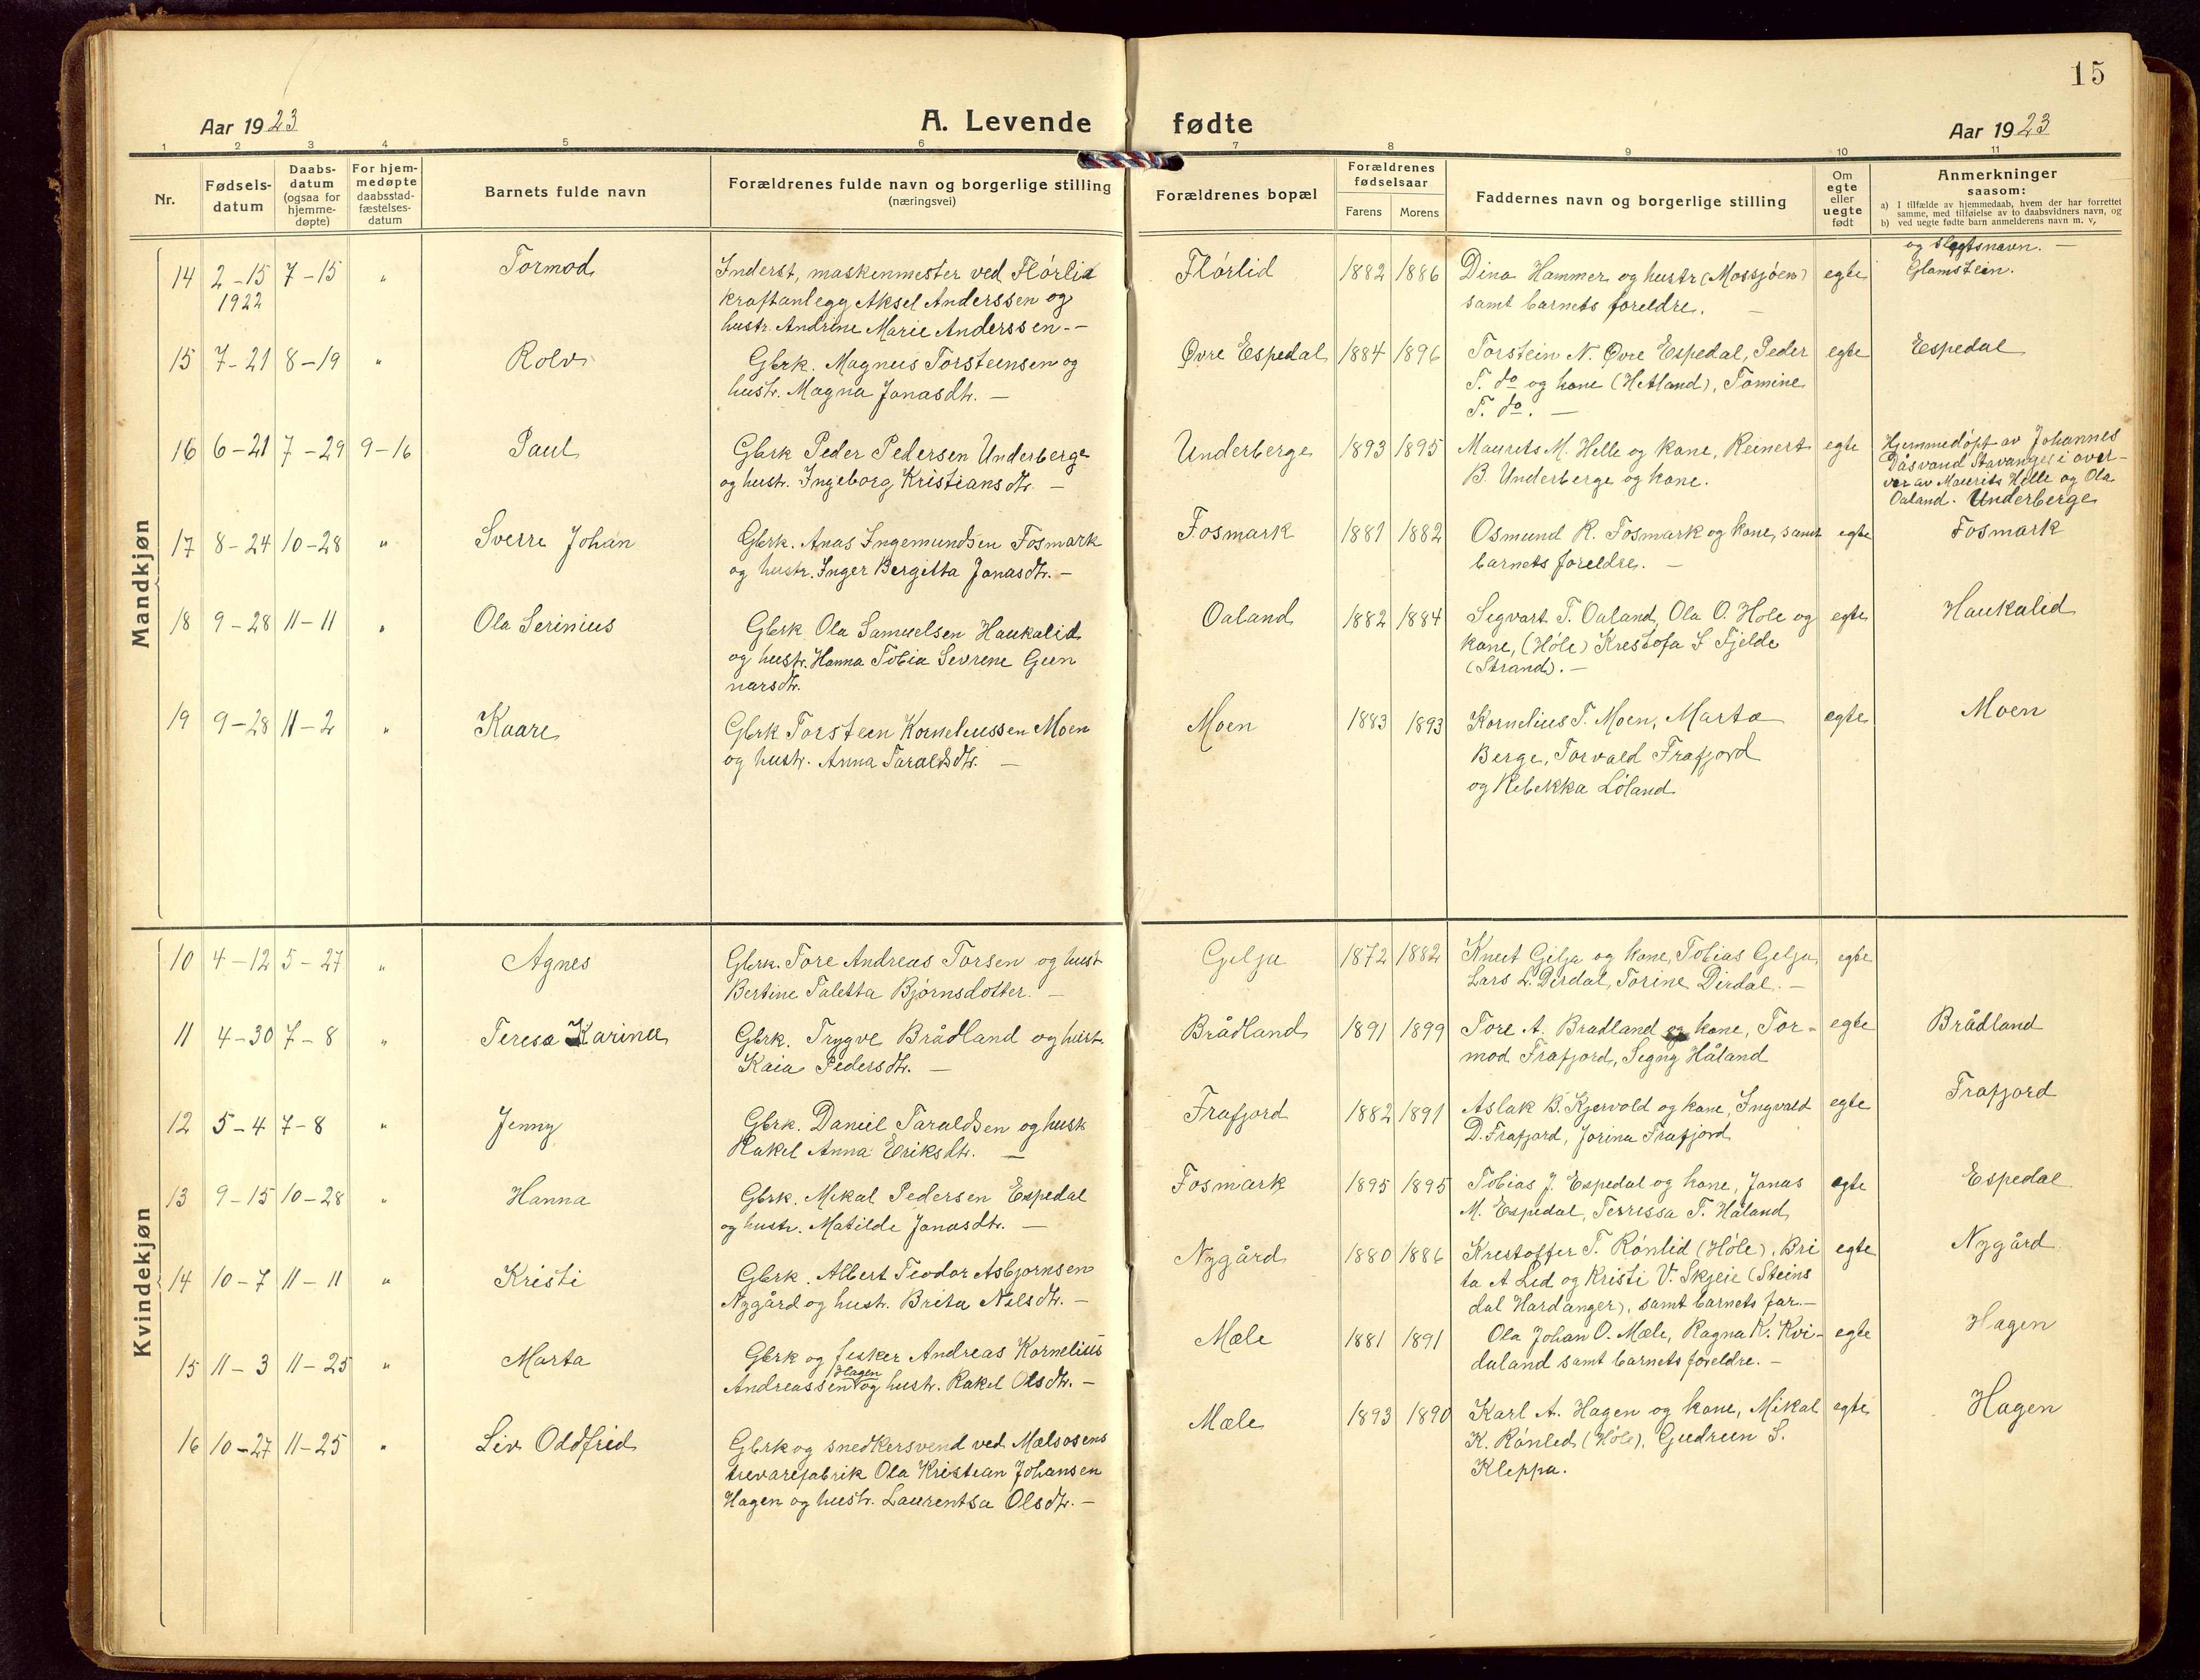 15
Aar 1923
A. Levende fødte
Aar 1923
1 2 3 4 5 6 7 8 9 10 11
Nr.
Fødsels-
datum
Daabs-
datum
(ogsaa for
hjemme-
døpte)
For hjem-
medøpte
daabsstad-
fæstelses-
datum
Barnets fulde navn
Forældrenes fulde navn og borgerlige stilling
(næringsvei)
Forældrenes bopæl
Forældrenes
fødselsaar
Farens Morens
Faddernes navn og borgerlige stilling
Om
egte
eller
uegte
født
Anmerkninger
saasom:
a) I tilfælde av hjemmedaab, hvem der har forrettet
samme, med tilføielse av to daabsvidners navn, og
b) ved uegte fødte barn anmelderens navn m. v,
Mandkjøn
og slegtsnavn. —
14 2–15 7–15 " Tormod Inderst, maskenmester ved Flórlid Flórlid 1882 1886 Dina Hammer og hustr (Mossjóen) egte Glamstein.
1922 kraftanlegg Aksel Anderssen og samt barnets foreldre. —
hustr. Andrine Marie Anderssen. –
15 7–21 8–19 " Rolv Gbrk. Magnus Torsteensen og Øvre Espedal 1884 1896 Torstein N. Øvre Espedal, Peder egte Espedal
hustr. Magna Jonasdtr. — T. do og kone (Hetland), Tomine
T. do. —
16 6–21 7–29 9–16 Paul Gbrk Peder Pedersen Underberge Underberge 1893 1895 Maurits M. Helle og kone, Reinert egte Hjemmedópt av Johannes
og hustr. Ingeborg Kristiansdtr. — B. Underberge og kone. Dåsvand Stavanger i over-
ver av Maurits Helle og Ola
Oaland. Underberge
17 8–24 10–28 " Sverre Johan Gbrk. Anas Ingemundsen Fosmark Fosmark 1881 1882 Osmund R. Fosmark og kone, samt egte Fosmark
og hustr. Inger Bergitta Jonasdtr. — barnets foreldre. —
18 9–28 11–11 " Ola Serinius Gbrk Ola Samuelsen Haukalid Oaland 1882 1884 Segvart T. Oaland, Ola O. Hole og egte Haukalid
og hustr. Hanna Tobia Severene Gun kone, (Hóle) Krestofa S Fjelde
narsdtr. (Strand). —
19 9–28 11–2 " Kaare Gbrk Torsteen Korneliussen Moen Moen 1883 1893 Kornelius T. Moen, Marta egte Moen
og hustr. Anna Taraldsdtr. — Berge, Torvald Frafjord
og Rebekka Lóland
Kvindekjøn
10 4–12 5–27 " Agnes Gbrk. Tore Andreas Torsen og hust Gilja 1872 1882 Knut Gilja og kone, Tobias Gelja, egte
Bertine Taletta Bjórnsdotter. — Lars L. Dirdal, Torine Dirdal. —
11 4–30 7–8 " Teresa Karina Gbrk. Trygve Brådland og hustr. Brådland 1891 1899 Tore A. Bradland og kone, Tor- egte Brådland
Kaia Pedersdtr. — mod Frafjord, Segny Håland
12 5–4 7–8 " Jenny Gbrk. Daniel Taraldsen og hustr Frafjord 1882 1891 Aslak B. Kjervold og kone, Ingvald egte Frafjord
Rakel Anna Eriksdtr. — D. Frafjord, Jorina Frafjord
13 9–15 10–28 " Hanna Gbrk. Mikal Pedersen Espedal Fosmark 1895 1895 Tobias J. Espedal og kone, Jonas egte Espedal
og hustr. Matilde Jonasdtr. — M. Espedal, Terressa T. Håland
14 10–7 11–11 " Kristi Gbrk. Albert Teodor Asbjornsen Nygård 1880 1886 Krestoffer T. Rónlid (Hóle), Bri egte Nygård
Nygård og hustr. Brita Nilsdtr. — ta A Lid og Kristi V. Skjeie (Steins
dal Hardanger), samt barnets far. —
15 11–3 11–25 " Marta Gbrk og fesker Andreas Kornelius Mæle 1881 1891 Ola Johan O. Mæle, Ragna K. Kvi- egte Hagen
Hagen
Andreassen og hustr. Rakel Olsdtr. — daland samt barnets foreldre. —
16 10–27 11–25 " Liv Oddfrid Gbrk og snedkersvend ved Mælsosens Mæle 1893 1890 Karl A. Hagen og kone, Mikal egte Hagen
trevarefabrik Ola Kristian Johansen K. Rónled (Hóle), Gudrun S.
Hagen og hustr. Laurentsa Olsdtr. — Kleppa.